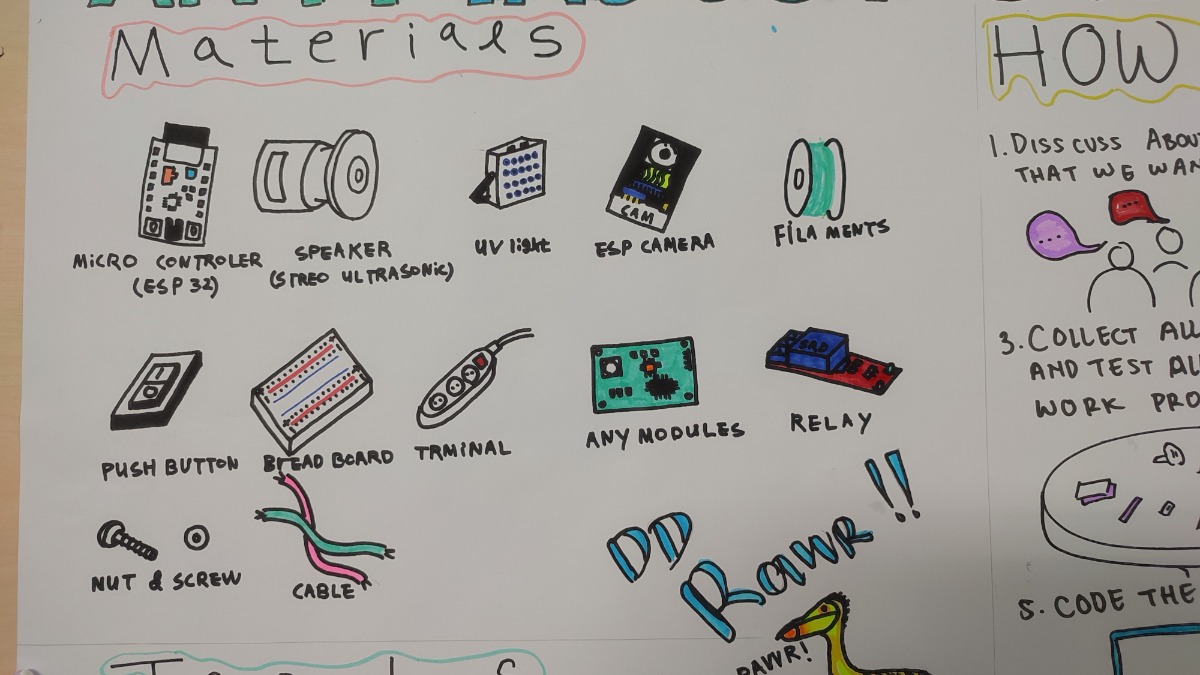 Materials
MiCRO CONTROLER
(ESP 32)
SPEAKER
(STREO ULTRASONiC)
UV light
CAM
ESP CAMERA
FiLAMENTS
PUSH BUTTON
BREAD BOARD
TRMINAL
ANY MODULES
RELAY
NUT & SCREW
CABLE
DD
RawR !!
RAWR!
HOW
1. DISSCUSS ABOU
THAT WE WAN
...
...
3. COLLECT ALL
AND TEST AL
WORK PRO
5. CODE THE